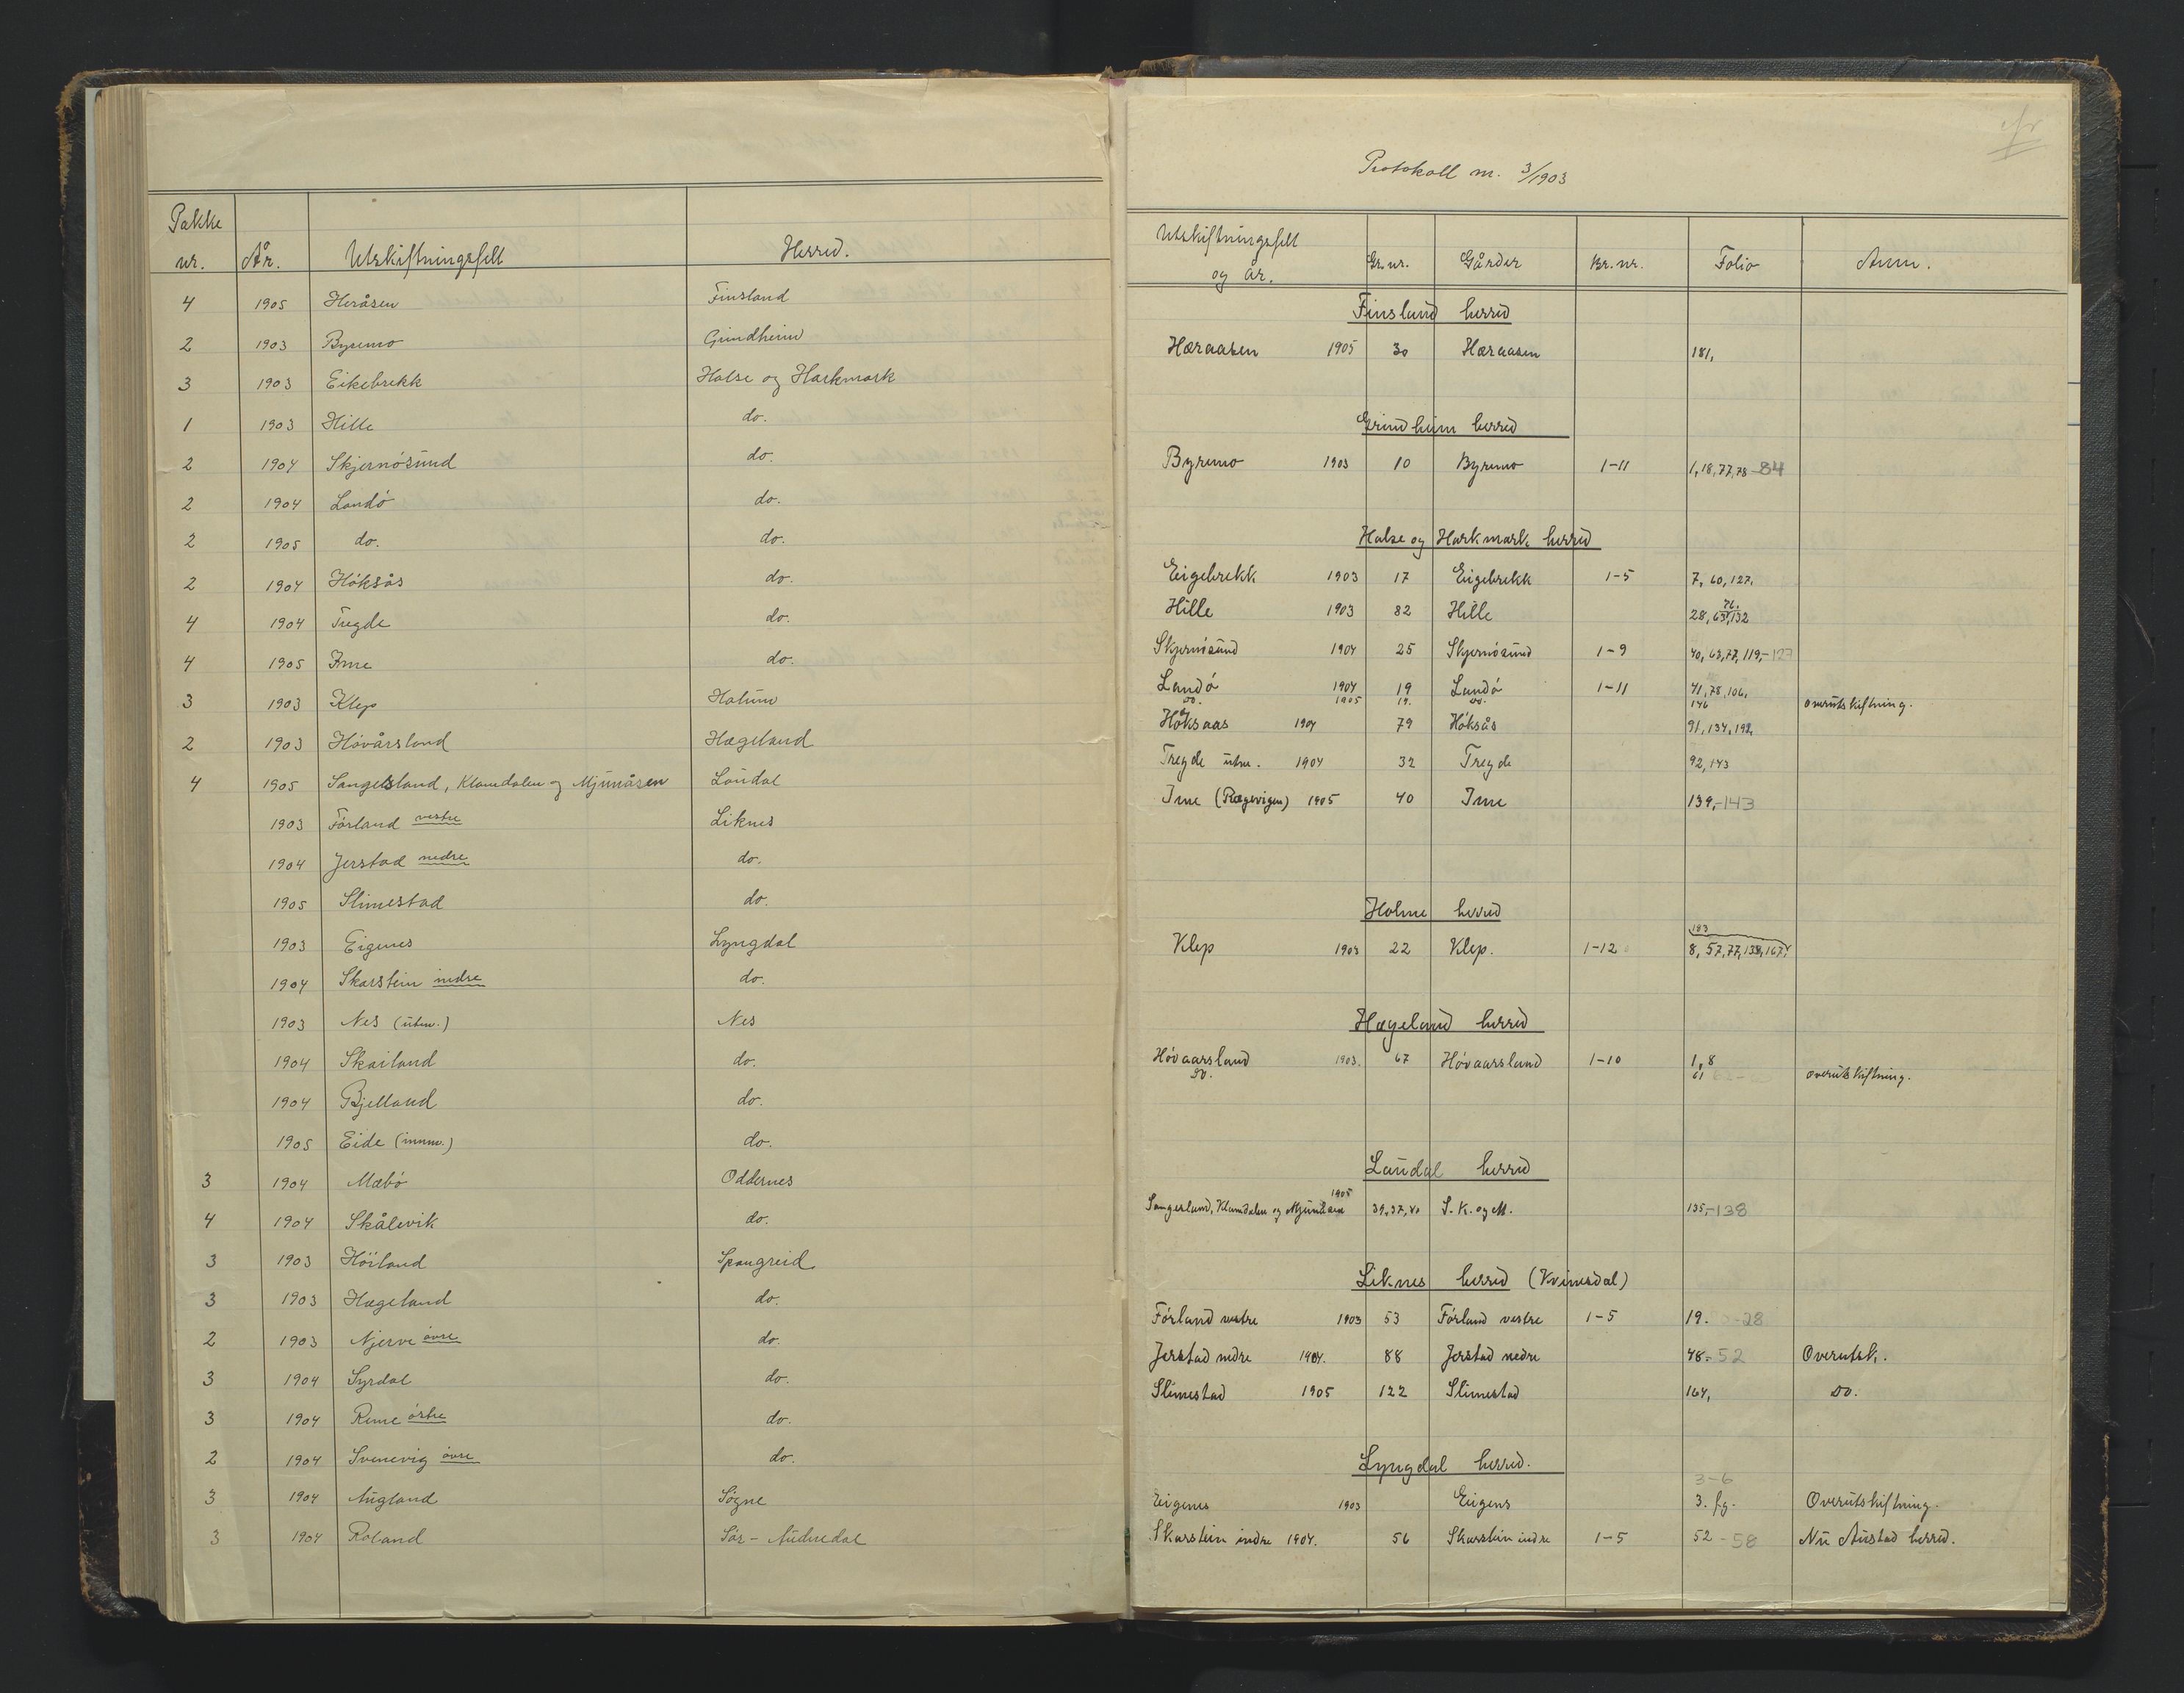 Pakke
nr. År. Utskiftningsfelt Herred.
4 1905 Heråsen Finsland
2 1903 Byremo Grindheim
3 1903 Eikebrekk Halse og Harkmark
1 1903 Hille do.
2 1904 Skjernösund do.
2 1904 Landö do.
2 1905 do. do.
2 1904 Höksås do.
4 1904 Tregde do.
4 1905 Ime do.
3 1903 Klep Holum
2 1903 Hövårsland Hægeland
4 1905 Sangesland, Klamdalen og Mjunåsen Laudal
1903 Förland vestre Liknes
1904 Jerstad nedre do.
1905 Slimestad do.
1903 Eigenes Lyngdal
1904 Skarstein indre do.
1903 Nes (utm.) Nes
1904 Skailand do.
1904 Bjelland do.
1905 Eide (innm.) do.
3 1904 Mæbö Oddernes
4 1904 Skålevik do.
3 1903 Höiland Spangreid
3 1903 Hægeland do.
2 1903 Njerve övre do.
3 1904 Syrdal do.
3 1904 Rime östre do.
2 1904 Svenevig övre do.
3 1904 Augland Sögne
3 1904 Roland Sör-Audnedal
Protokoll nr. 3/1903
Utskiftningsfelt
og år. Gr.nr. Gårder Br.nr. Folio Anm.
Finsland herred
Hæraasen 1905 30 Hæraasen 181,
Grindheim herred
Byremo 1903 10 Byremo 1-11 1, 18, 77, 78-84
Halse og Harkmark herred
Eigebrekk 1903 17 Eigebrekk 1-5 7, 60, 127,
Hille 1903 82 Hille 28, 63, 76, 132
Skjernösund 1904 25 Skjernösund 1-9 40, 63, 77, 119,-127
Landö 1904 19 Landö 1-11 41, 78, 106,
do. 1905 19. do. 146 overutskiftning.
Höksaas 1904 79 Höksås 91, 134, 192,
Tregde utm. 1904 32 Tregde 92, 143
Ime (Rægevigen) 1905 40 Ime 139,-143
Holme herred
183
Klep 1903 22 Klep. 1-12 8, 57, 77, 138, 167,
Hægeland herred
Hövaarsland 1903. 67 Hövaarsland 1-10 1, 8
do. 61 overutskiftning.
Laudal herred
Sangesland, Klamdalen og Mjunåsen 1905 39, 37, 40 S. K. og M. 135,-138
Liknes herred (Kvinesdal)
Förland vestre 1903 53 Förland vestre 1-5 19. -28
Jerstad nedre 1904. 88 Jerstad nedre 48-52 Overutsk.
Slimestad 1905 122 Slimestad 164, do.
Lyngdal herred.
3-6
Eigenes 1903 Eigens 3. fg. Overutskiftning.
Skarstein indre 1904. 56 Skarstein indre 1-5 52-58 Nu Austad herred.